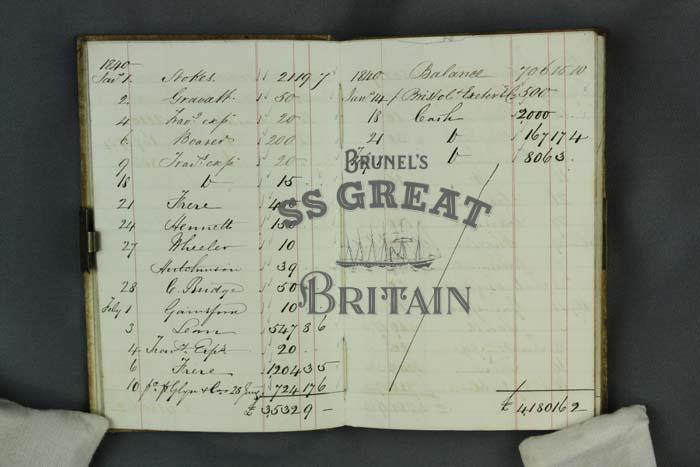 1840
Jany 1. Stokes 211 9 7
2 Gravatt " 50
4 Travg exps " 20
6 Bearer " 200
9 Travg exps " 20
18 D " 15
21 Frere
24 Hennett
27 Wheeler " 10
Hutchinson " 39
28 C. Bridge " 50
Feby 1 Gainsford " 10
3 Lean " 547 8 6
4 Travg Exps " 20
6 Frere " 1204 3 5
10 724 17 6
£ 3532 9 -
1840 Balance 706 15 10
Jany 14 Bristol & Exeter 500
18 Cash 2,000
21 D " 167 17 4
D " 806 3
£ 4180 16 2
BRUNEL'S
SS GREAT
BRITAIN